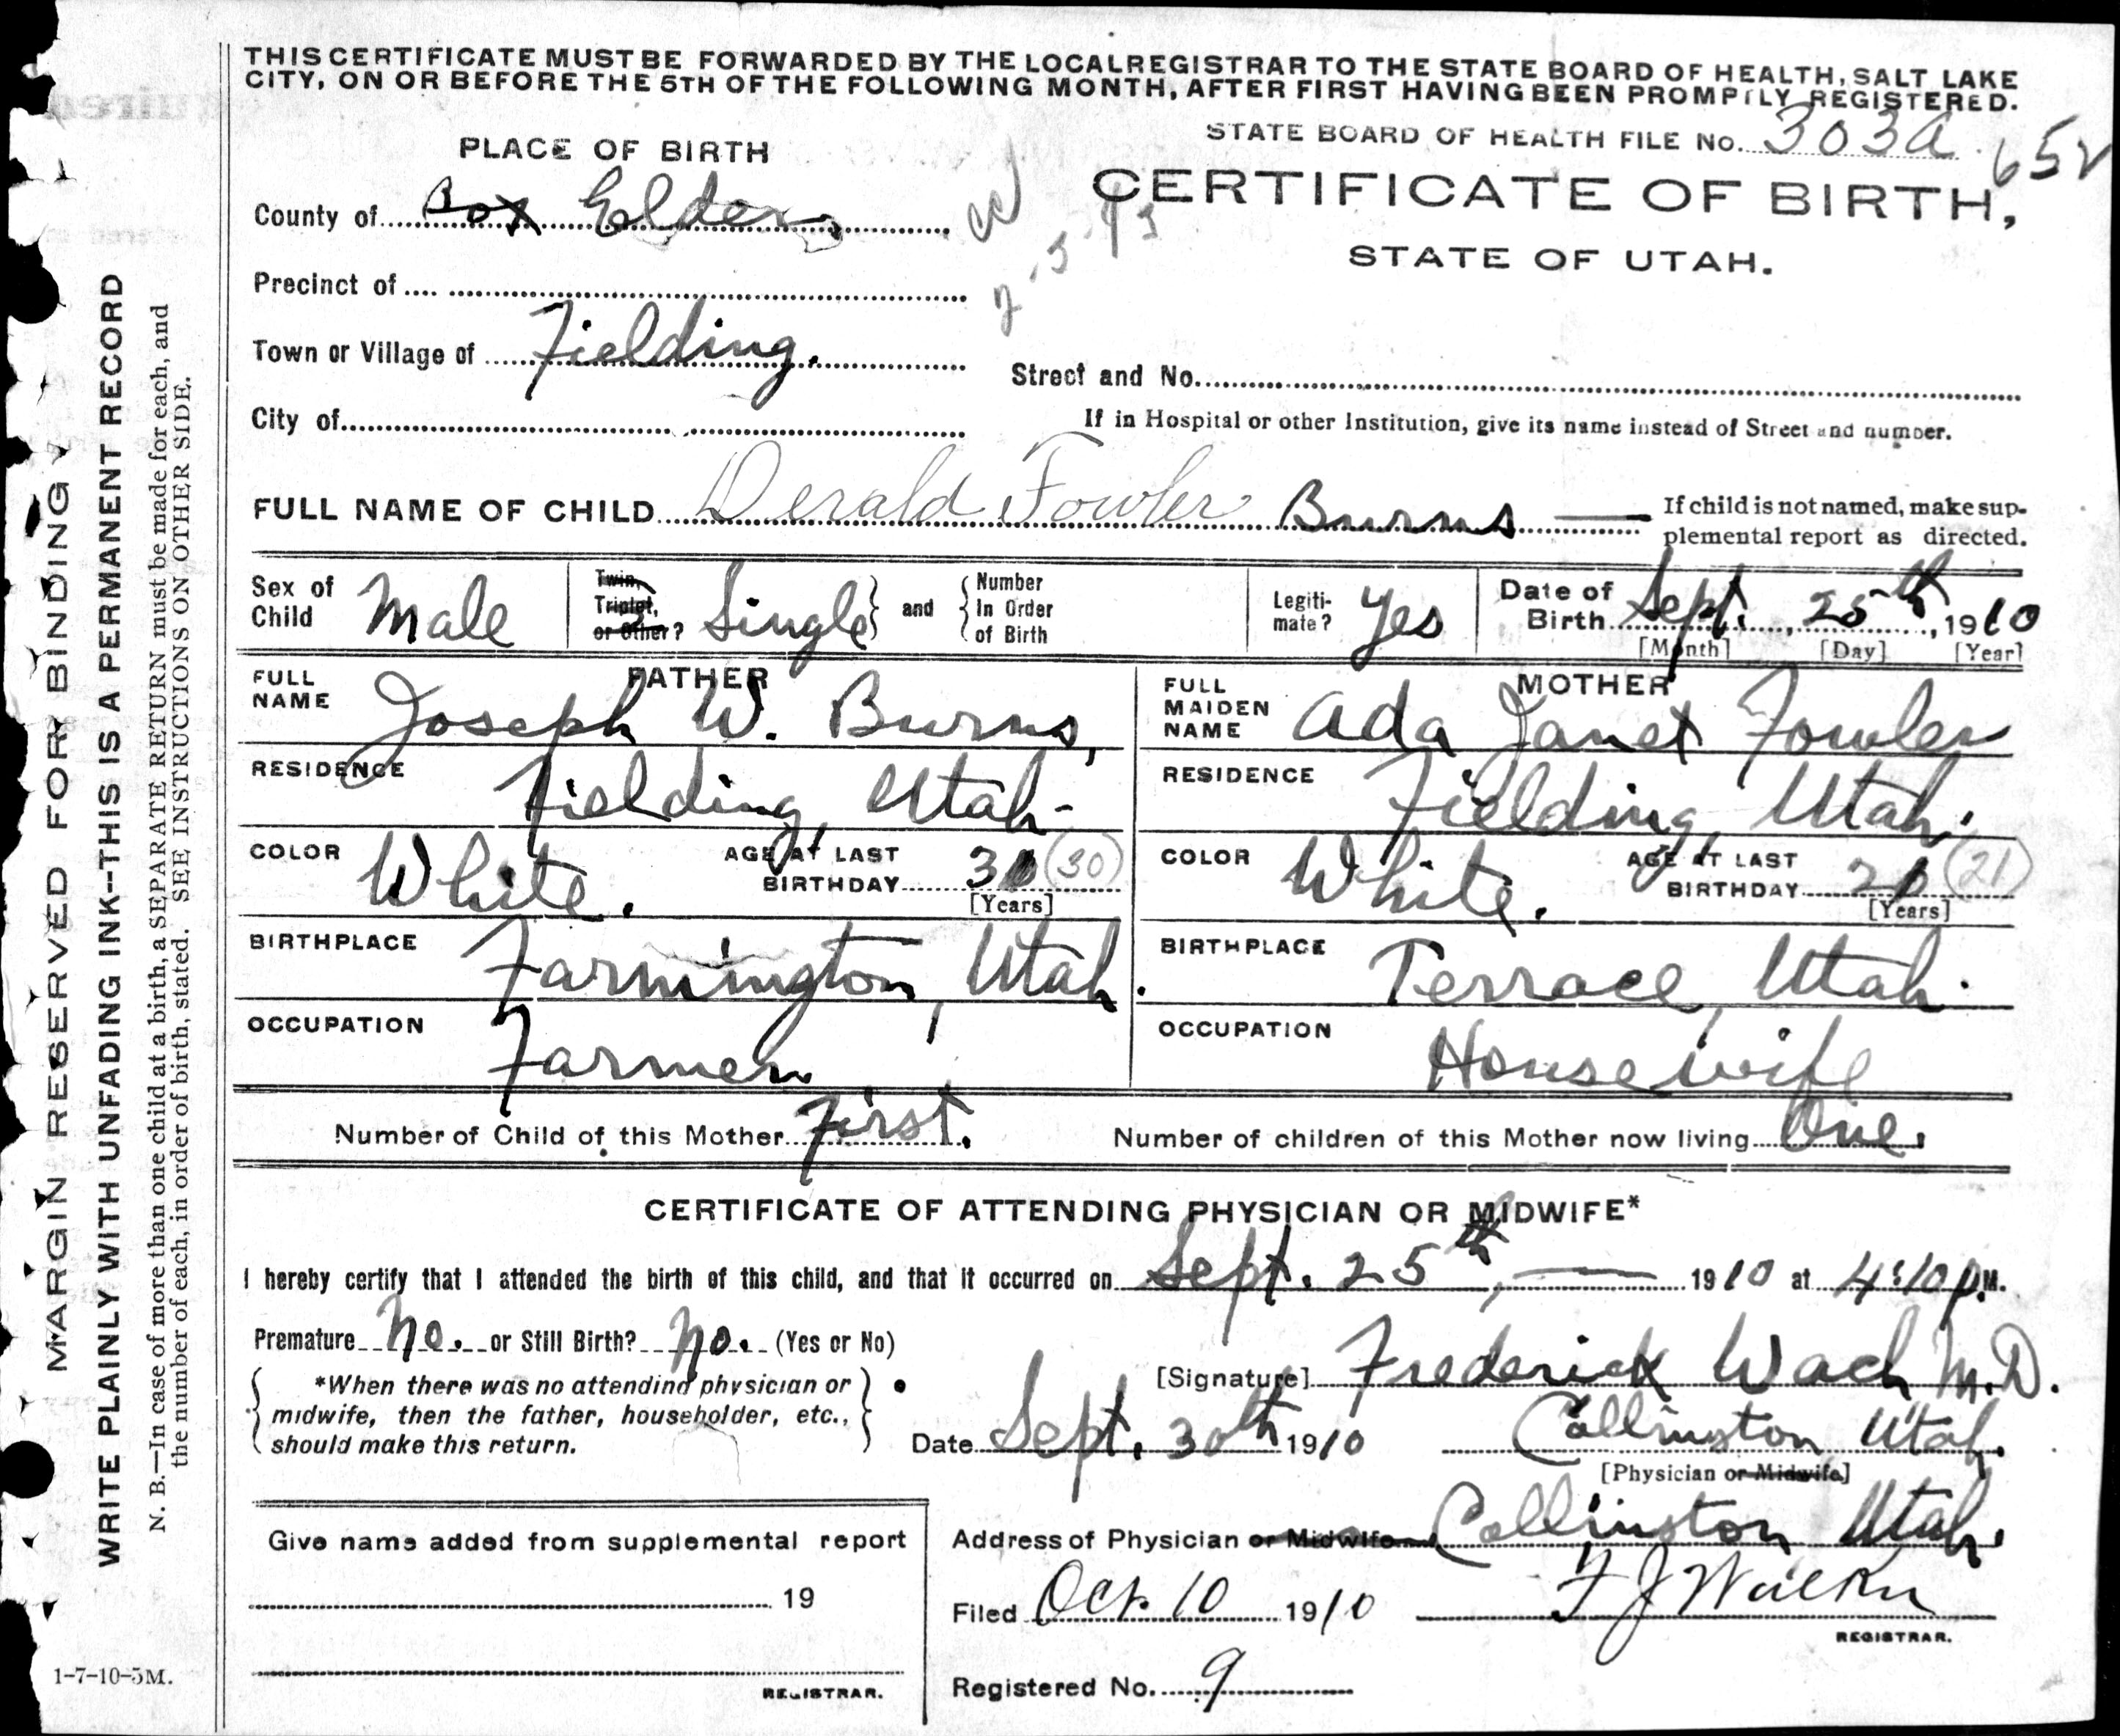 THIS CERTIFICATE MUST BE FORWARDED BY THE LOCAL REGISTRAR TO THE STATE BOARD OF HEALTH, SALT LAKE
CITY, ON OR BEFORE THE 5TH OF THE FOLLOWING MONTH, AFTER FIRST HAVING BEEN PROMPTLY REGISTERED.
STATE BOARD OF HEALTH FILE No. 303a 652
PLACE OF BIRTH
CERTIFICATE OF BIRTH,
STATE OF UTAH.
County of Box Elder
Precinct of
Town or Village of Fielding.
Street and No.
City of
If in Hospital or other Institution, give its name instead of Street and number.
FULL NAME OF CHILD Derald Fowler Burns
If child is not named, make sup-
plemental report as directed.
Sex of Child Male
Twin, Triplet, or Other? Single and Number In Order of Birth
Legiti-mate? Yes
Date of Birth Sept. 25th, 1910
[Month] [Day] [Year]
FATHER
FULL NAME Joseph W. Burns,
RESIDENCE Fielding, Utah-
COLOR White. AGE AT LAST BIRTHDAY 30 (30)
[Years]
BIRTHPLACE Farmington, Utah.
OCCUPATION Farmer
MOTHER
FULL MAIDEN NAME Ada Janet Fowler
RESIDENCE Fielding, Utah.
COLOR White. AGE AT LAST BIRTHDAY 21 (21)
[Years]
BIRTHPLACE Terrace, Utah.
OCCUPATION Housewife
Number of Child of this Mother First.
Number of children of this Mother now living One.
CERTIFICATE OF ATTENDING PHYSICIAN OR MIDWIFE*
I hereby certify that I attended the birth of this child, and that it occurred on Sept. 25th, 1910 at 4:10 P.M.
Premature No. or Still Birth? No. (Yes or No)
*When there was no attending physician or
midwife, then the father, householder, etc.,
should make this return.
[Signature] Frederick Wach M.D.
Date Sept. 30th 1910 Collinston Utah.
[Physician or Midwife]
Address of Physician or Midwife Collinston Utah.
Filed Oct. 10 1910 F J Walker
REGISTRAR.
Registered No. 9
Give name added from supplemental report
19
REGISTRAR.
MARGIN RESERVED FOR BINDING
WRITE PLAINLY WITH UNFADING INK--THIS IS A PERMANENT RECORD
N. B.—In case of more than one child at a birth, a SEPARATE RETURN must be made for each, and
the number of each, in order of birth, stated. SEE INSTRUCTIONS ON OTHER SIDE.
1-7-10-5M.